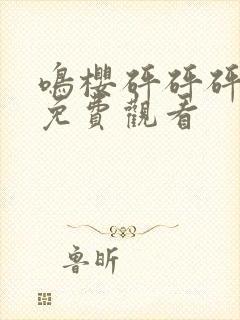 鳴櫻砰砰砰
免費觀看
魯昕